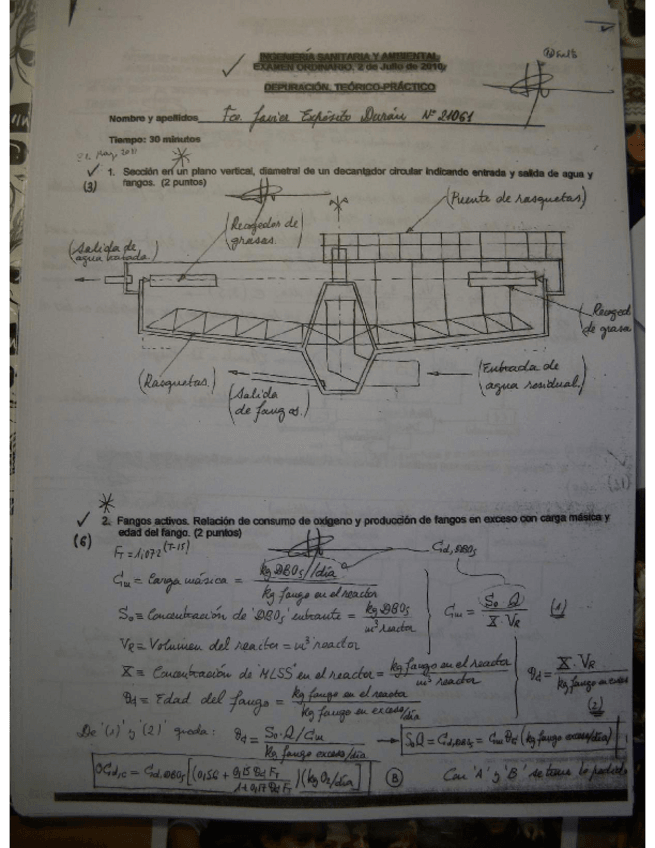 INGENIERÍA SANITARIA Y AMBIENTAL
EXAMEN ORDINARIO. 2 de Julio de 2010
DEPURACIÓN. TEÓRICO-PRÁCTICO
Nombre y apellidos Fco. Javier Expósito Durán Nº 21061
Tiempo: 30 minutos
1. Sección en un plano vertical, diametral de un decantador circular indicando entrada y salida de agua y
(3) fangos. (2 puntos)
(Puente de rasquetas)
(Recogedor de
grasas.)
(Salida de
agua tratada)
(Recoged
de grasa
(Rasquetas.)
(Salida
de fangos.)
(Entrada de
agua residual)
2. Fangos activos. Relación de consumo de oxígeno y producción de fangos en exceso con carga másica y
(6) edad del fango. (2 puntos)
FT = 1,072^(T-15)
Cd,DBO5
Cm = Carga másica = kg DBO5/día / kg fango en el reactor
S0 ≡ Concentración de 'DBO5' entrante = kg DBO5 / m³ reactor
Cm = S0·Q / X·VR (1)
VR = Volumen del reactor = m³ reactor
X ≡ Concentración de 'MLSS' en el reactor = kg fango en el reactor / m³ reactor
θd = X·VR / kg fango en exceso (2)
θd = Edad del fango = kg fango en el reactor / kg fango en exceso/día
De '(1)' y '(2)' queda: θd = S0·Q/Cm / kg fango exceso/día → S0Q = Cd,DBO5 = Cm θd (kg fango exceso/día)
OCd,C = Cd,DBO5 [(0,56 + 0,15 θd FT / 1+0,17 θd FT)(kg O2/día)] (B) Con 'A' y 'B' se tiene lo pedido